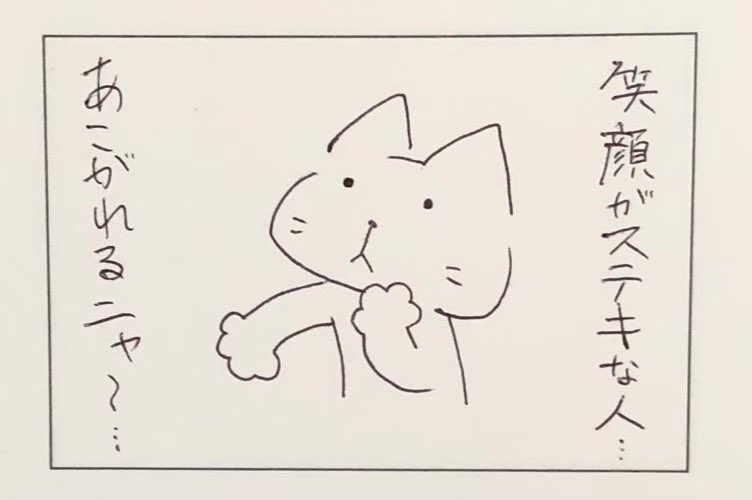 笑顔がステキな人…
あこがれるニャ〜…